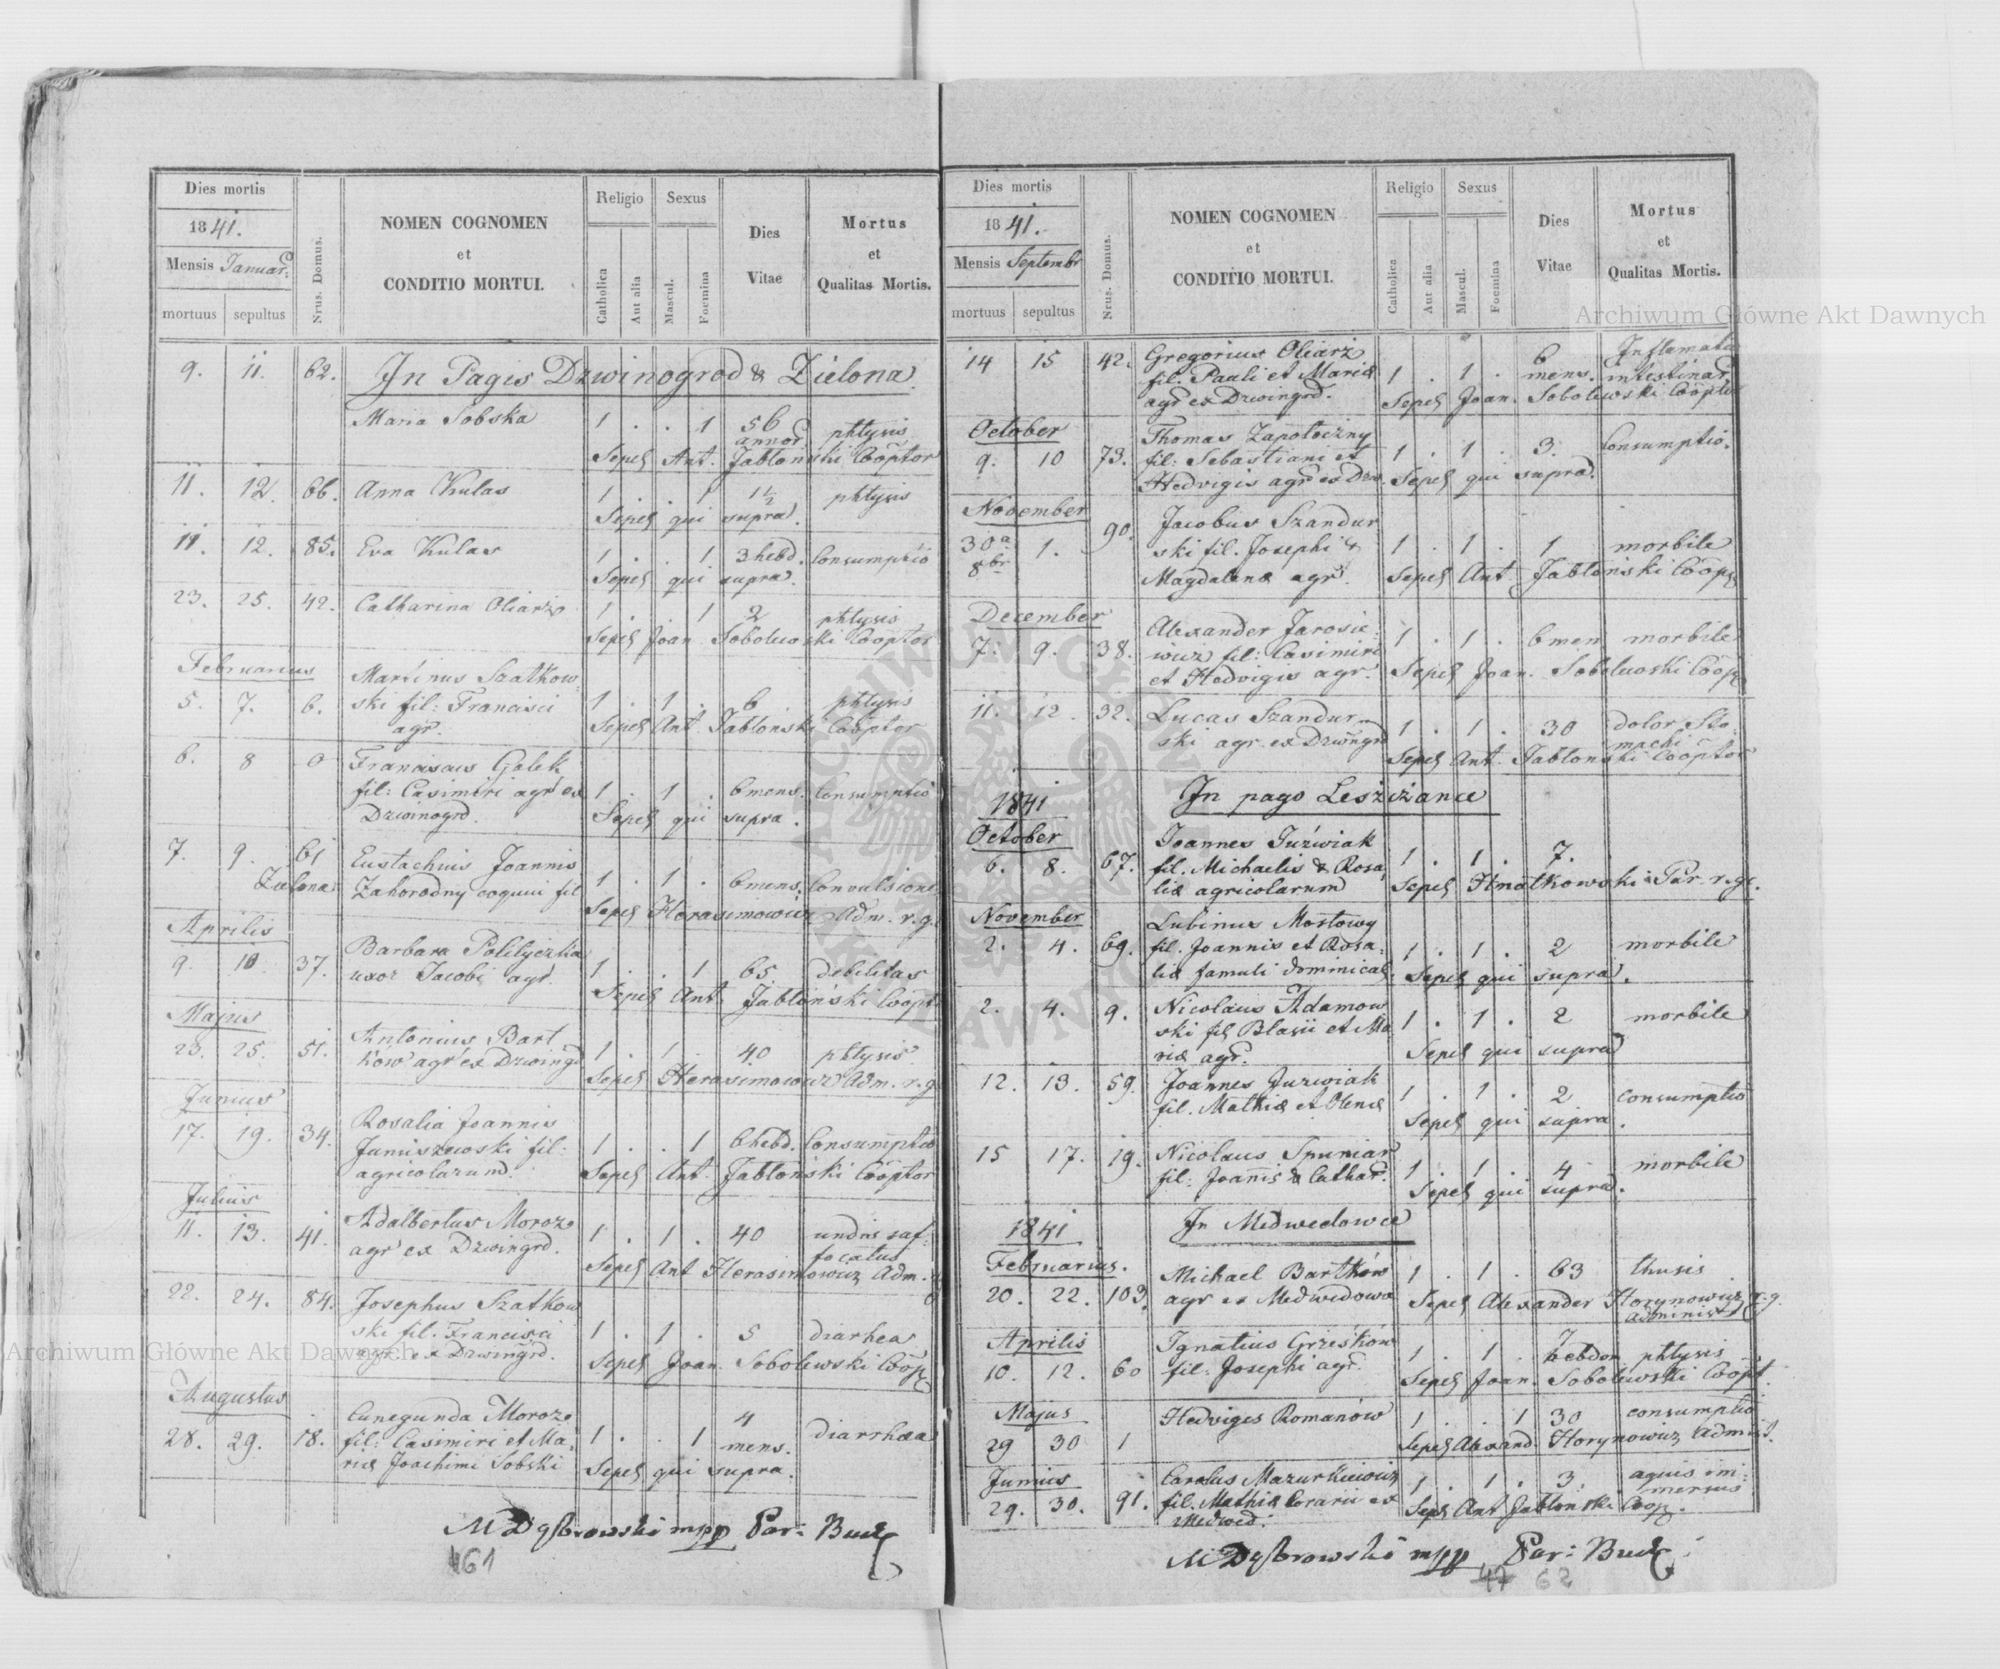 Dies mortis
1841.
Mensis Januar:
mortuus sepultus
Nrus. Domus.
NOMEN COGNOMEN
et
CONDITIO MORTUI.
Religio Sexus
Catholica Aut alia Mascul. Foemina
Dies
Vitae
Mortus
et
Qualitas Mortis.
9. 11. 62. In Pagis Dzwinogrod & Zielona.
Maria Sobska 1 . . 1 56 phtysis
annor.
Sepel Ant. Jabłonski Cooptor
11. 12. 66. Anna Kulas 1 . . 1 1½ phtysis
Sepel qui supra.
11. 12. 85. Eva Kulas 1 . . 1 3 hebd. Consumptio
Sepel qui supra.
23. 25. 42. Catharina Oliarz 1 . . 1 2 phtysis
Sepel Joan. Sobolewski Cooptor
Februarius
Martinus Szatkow
5. 7. 6. ski fil: Francisci 1 . 1 . 6 phtysis
agr. Sepel Ant. Jabłonski Cooptor
6. 8 0 Franciscus Golek
fil: Casimiri agr ex 1 . 1 . 6 mens. Consumptio
Dzwinogrd. Sepel qui supra.
7. 9. 61 Eustachius Joannis
Zielona Zahorodny coqui fil 1 . 1 . 6 mens. Convulsione
Sepel Herasimowicz Adm. r. g.
Aprilis
Barbara Polityczka
9. 10. 37. uxor Jacobi agr. 1 . . 1 65 debilitas
Sepel Ant. Jabłoński Coopt
Majus
Antonius Bart
23. 25. 51. ków agr ex Dzwingd 1 . 1 . 40 phtysis
Sepel Herasimowicz Adm. r. g
Junius
Rosalia Joannis
17. 19. 34. Janiszewski fil: 1 . . 1 6 hebd. Consumptio
agricolarum. Sepel Ant. Jabłonski Cooptor
Julius
Adalbertus Moroz
11. 13. 41. agr ex Dzwingrd. 1 . 1 . 40 undis saf-
focatus
Sepel Ant Herasimowicz Adm.
22. 24. 84. Josephus Szatkow
ski fil. Francisci 1 . 1 . 5 diarhea
agr. ex Dzwingrd. Sepel Joan. Sobolewski Coop
Augustus
Cunegunda Moroz 4
28. 29. 18. fil: Casimiri et Ma- 1 . . 1 mens. diarrhaa
riæ Joachimi Sobski Sepel qui supra.
MDąbrowski mpp Par: Bucz
461
Dies mortis
1841.
Mensis Septembr
mortuus sepultus
Nrus. Domus.
NOMEN COGNOMEN
et
CONDITIO MORTUI.
Religio Sexus
Catholica Aut alia Mascul. Foemina
Dies
Vitae
Mortus
et
Qualitas Mortis.
14 15 42. Gregorius Oliarz 6 Inflamatio
fil. Pauli et Mariæ 1 . 1 . mens. intestinar
agr ex Dzwingrd. Sepel Joan. Sobolewski Coopto
October
Thomas Zapotoczny
9. 10 73. fil: Sebastiani et 1 . 1 . 3. Consumptio.
Hedvigis agr ex Dzw. Sepel qui supra.
November
90. Jacobus Szandur
30a 1. ski fil. Josephi & 1 . 1 . 1 morbile
8br Magdalenæ agr. Sepel Ant. Jabłoński Coop
December
Alexander Jarosie-
7. 9. 38. wicz fil: Casimiri 1 . 1 . 6 men morbile
et Hedvigis agr. Sepel Joan. Sobolewski Coop
11. 12. 32. Lucas Szandur
ski agr. ex Dzwngrd 1 . 1 . 30 dolor Sto-
machi
Sepel Ant. Jabłonski Cooptor
1841 In pago Leszczance
October
Joannes Juźwiak
6. 8. 67. fil. Michaelis & Rosa- 1 . 1 . 7.
liæ agricolarum Sepel Hnatkowski Par. r. gr.
November
Lubinus Mostowy
2. 4. 69. fil. Joannis et Rosa- 1 . 1 . 2 morbile
liæ famuli dominical. Sepel qui supra.
2. 4. 9. Nicolaus Adamow
ski fil Blasii et Ma 1 . 1 . 2 morbile
riæ agr. Sepel qui supra
12. 13. 59. Joannes Juzwiak
fil. Mathiæ et Olenæ 1 . 1 . 2 consumptio
Sepel qui supra.
15 17. 19. Nicolaus Spuniar
fil: Joannis & Cathar. 1 . 1 . 4 morbile
Sepel qui supra.
1841 In Medwedowce
Februarius.
Michael Bartków 1 . 1 . 63 thusis
20. 22. 103. agr ex Medwedowa Sepel Alexander Horynowicz r. g.
Administ
Aprilis
Ignatius Grześków 7
10. 12. 60 fil: Josephi agr. 1 . 1 . hebdom phtysis
Sepel Joan. Sobolewski Coopt.
Majus
Hedviges Romanów 1 . . 1 30 consumptio
29 30 1 Sepel Alexand. Horynowicz Admist.
Junius
Carolus Mazurkiewicz 1 . 1 . 3. aquis im-
mersus
29. 30. 91. fil. Mathiæ ex
Medwed. Sepel Ant Jabłonski Coop.
MDąbrowski mpp Par: Bucz
47 62
Archiwum Główne Akt Dawnych
Archiwum Główne Akt Dawnych
ARCHIWUM GŁÓWNE AKT DAWNYCH